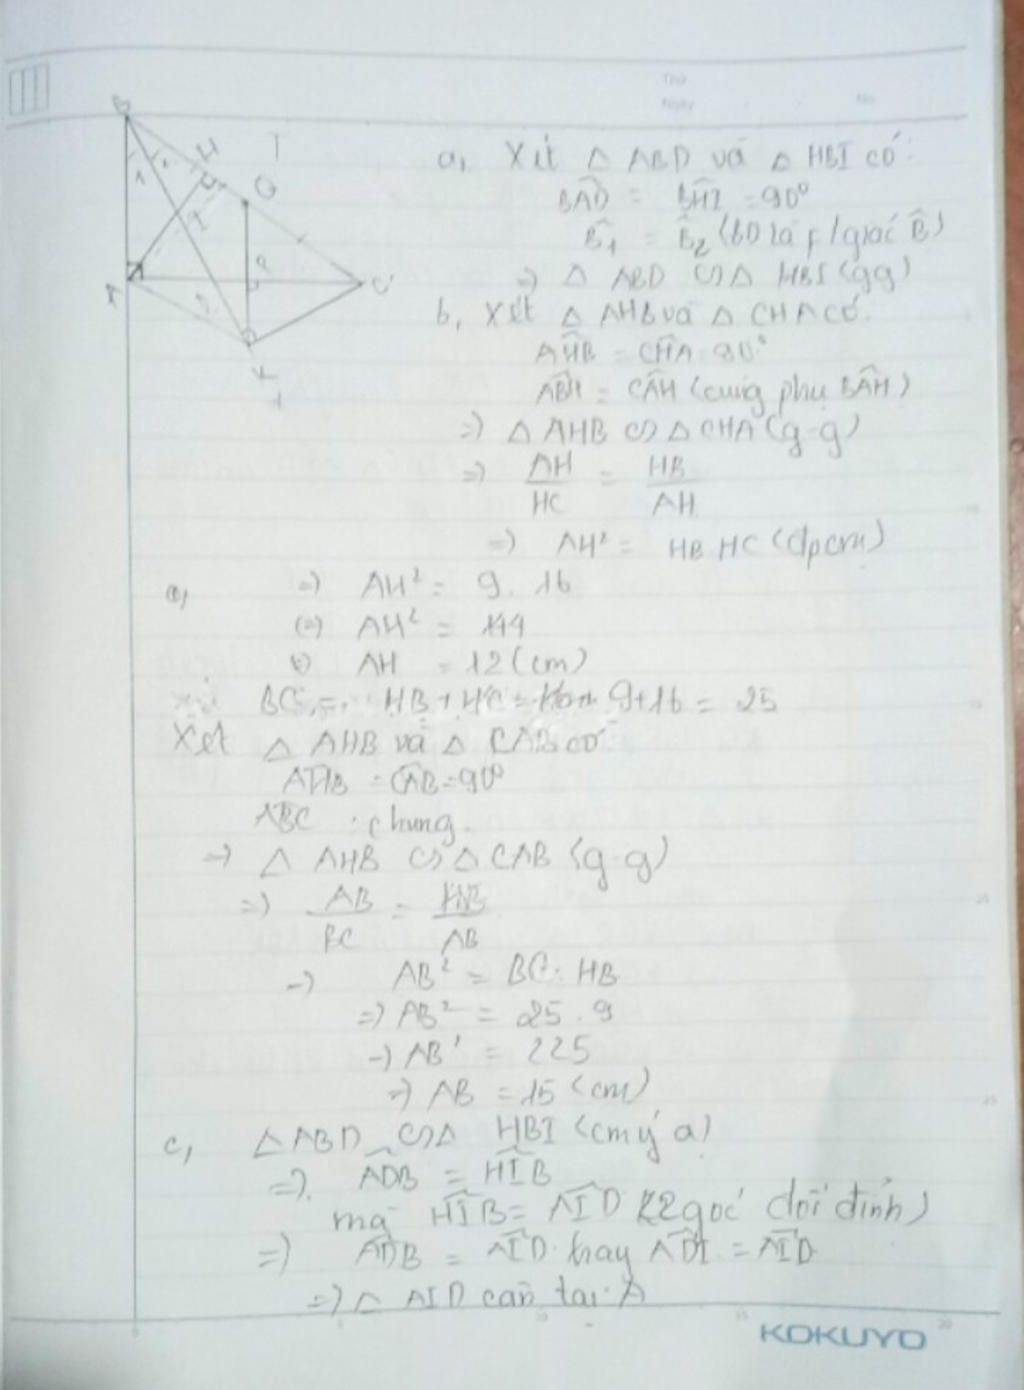 Thứ
Ngày
No
B
H
Q
I
P
A
C
a, Xét △ ABD và △ HBI có:
BAD = BHI = 90°
B̂1 = B̂2 (BD là p/giác B̂)
=> △ ABD ∽ △ HBI (gg)
b, Xét △ AHB và △ CHA có:
AHB = CHA = 90°
ABH = CAH (cùng phụ BAH)
=> △ AHB ∽ △ CHA (g-g)
=> AH/HC = HB/AH
=> AH² = HB HC (đpcm)
=> AH² = 9. 16
AH² = 144
AH = 12 (cm)
BC = HB + HC = 9+16 = 25
Xét △ AHB và △ CAB có
AHB = CAB = 90°
ABC : chung.
=> △ AHB ∽ △ CAB (g-g)
=> AB/BC = HB/AB
=> AB² = BC. HB
=> AB² = 25 . 9
=> AB² = 225
=> AB = 15 (cm)
c, △ ABD ∽ △ HBI (cm ý a)
=> ADB = HIB
mà HIB = AID (2 góc đối đỉnh)
=> ADB = AID hay ADI = AID
=> △ AID cân tại A
KOKUYO